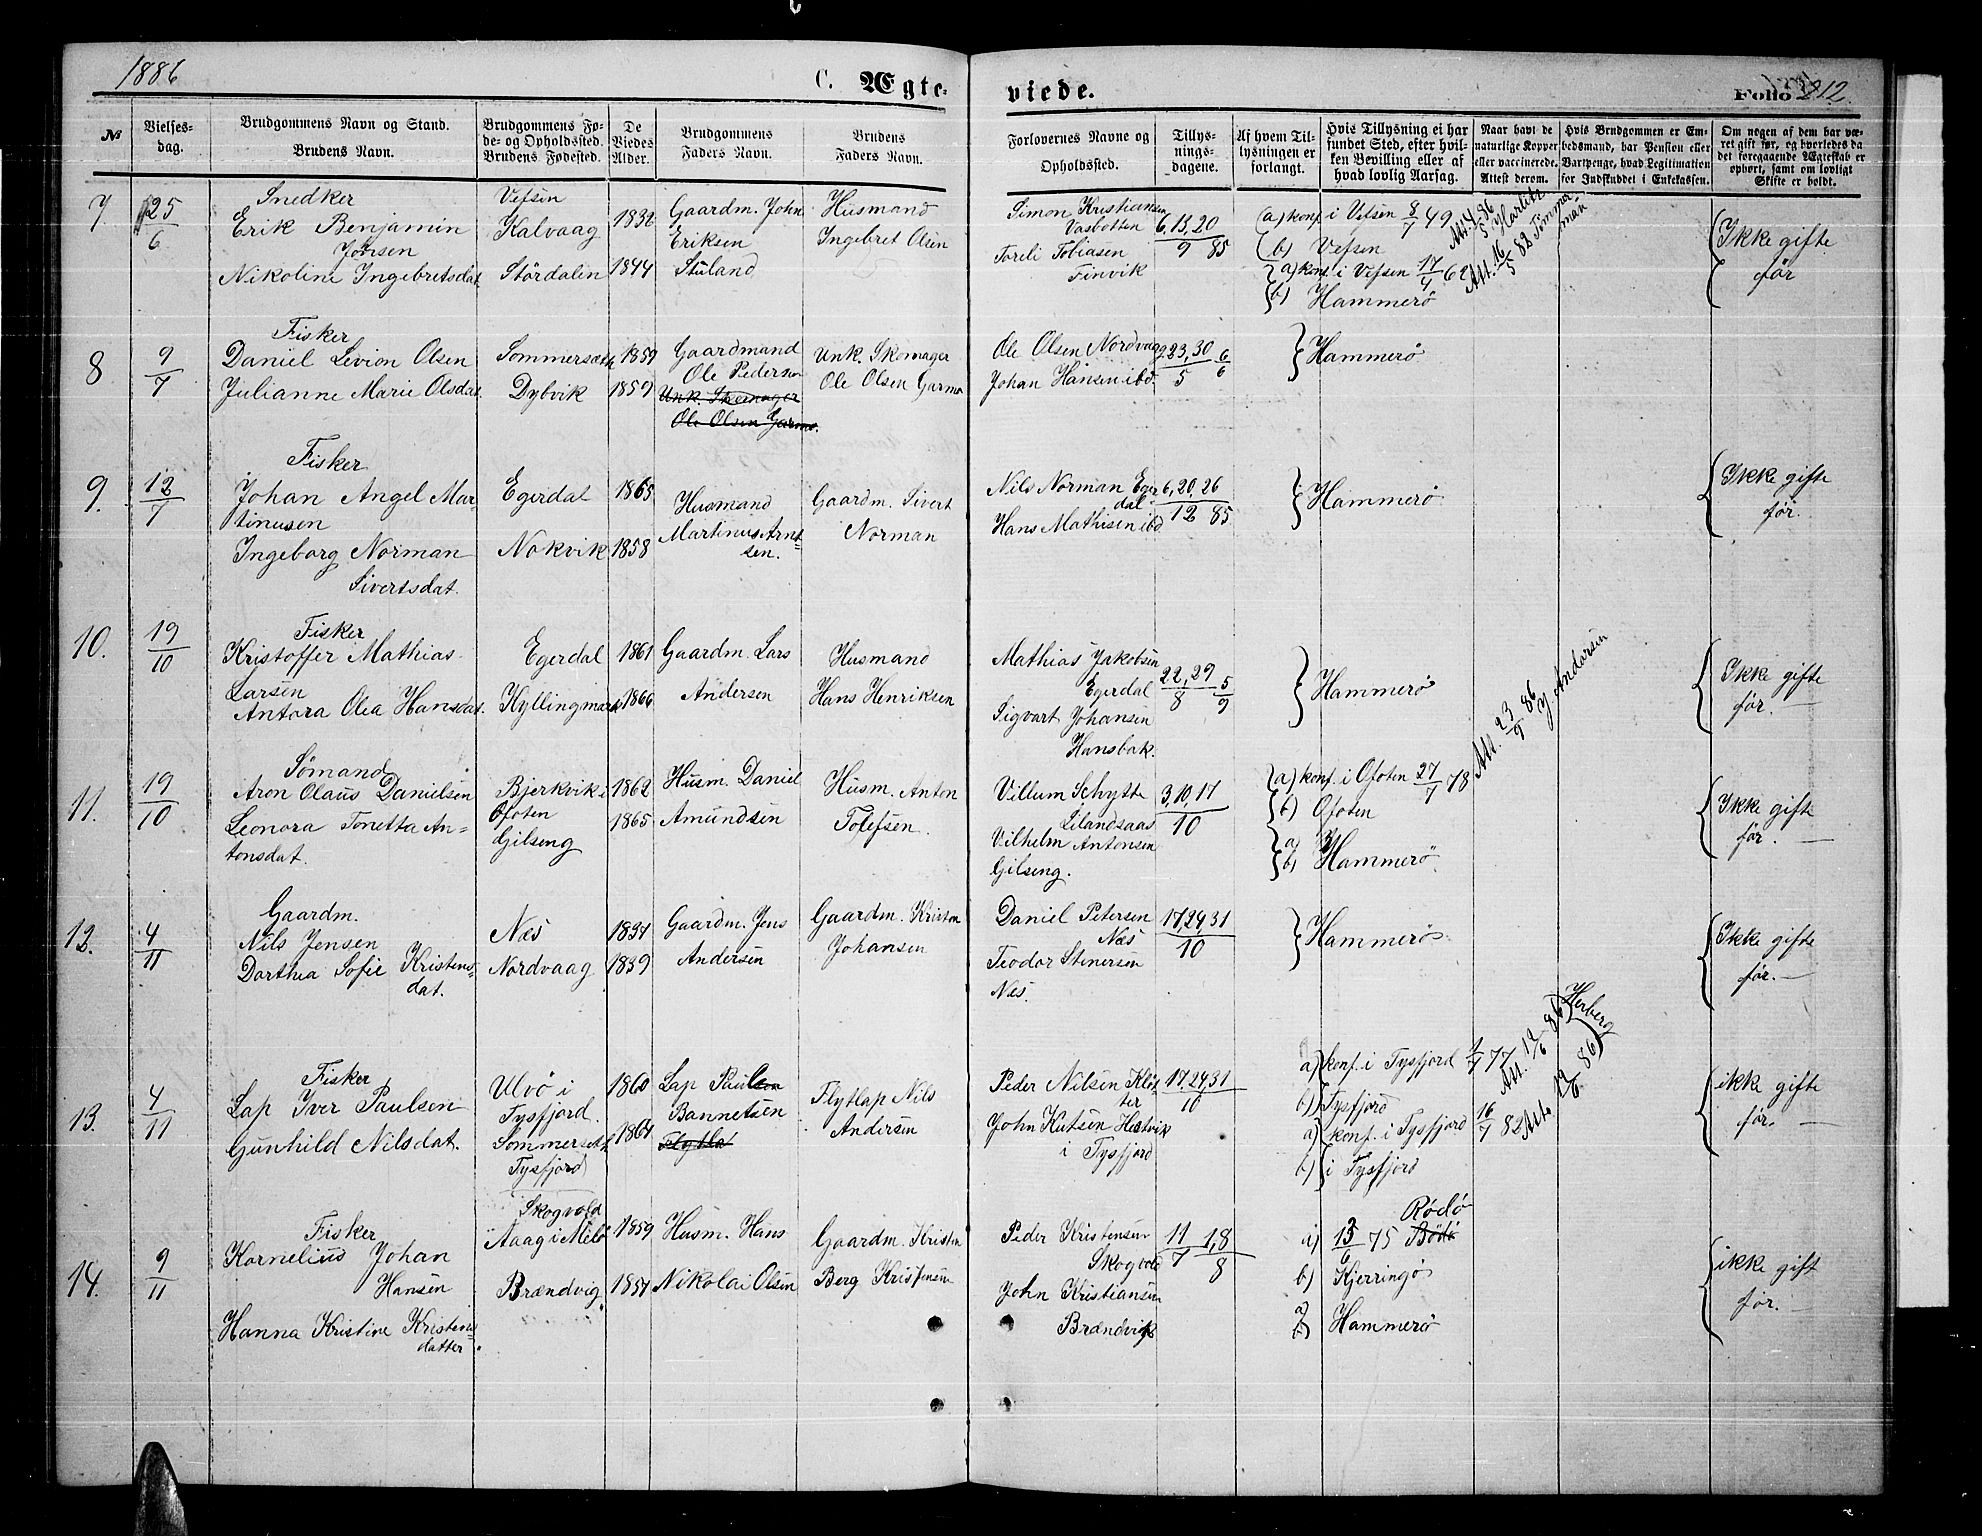 1886
C. Ægte-
viede.
Folio 212.
№
Vielses-
dag.
Brudgommens Navn og Stand.
Brudens Navn.
Brudgommens Fø-
de- og Opholdssted.
Brudens Fødested.
De
Viedes
Alder.
Brudgommens
Faders Navn.
Brudens
Faders Navn.
Forlovernes Navne og
Opholdssted.
Tillys-
nings-
dagene.
Af hvem Til-
lysningen er
forlangt.
Hvis Tillysning ei har
fundet Sted, efter hvil-
ken Bevilling eller af
hvad lovlig Aarsag.
Naar havt de
naturlige Kopper
eller vaccinerede.
Attest derom.
Hvis Brudgommen er Em-
bedsmand, har Pension eller
Vartpenge, hvad Legitimation
for Indskuddet i Enkekassen.
Om nogen af dem har væ-
ret gift før, og hvorledes da
det foregaaende Ægteskab er
ophørt, samt om lovligt
Skifte er holdt.
7
25/6
Snedker
Erik Benjamin
Johnsen
Nikoline Ingebretsdat.
Vefsen
Kalvaag
Stördalen
1832
1844
Gaardm. John
Eriksen
Stuland
Husmand
Ingebret Olsen
Simon Kristiansen
Vasbotten
Toreli Tobiasen
Finvik
6, 13, 20
9 85
(a) konf. i Vefsen 8/7 49
(b) Vefsen
(a) konf. i Vefsen 17/4 62
(b) Hammerö
Ikke gifte
før
8
9/7
Fisker
Daniel Levion Olsen
Julianne Marie Olsdat.
Sommersæth
Dybvik
1859
1859
Gaardmand
Ole Pedersen
Unk. Skomager
Ole Olsen Garmo.
Unk. Skomager
Ole Olsen Garmo
Ole Olsen Nordvaag
Johan Hansen ibd.
23, 30/5 6/6
Hammerö
9.
12/7
Fisker
Johan Angel Mar-
tinusen
Ingeborg Norman
Sivertsdat.
Egerdal
Nokvik
1865
1858
Husmand
Martinus Arnt-
sen.
Gaardm. Sivert
Norman
Nils Norman Eger
dal
Hans Mathisen ibd
6, 20, 26
12 85
Hammerö
Ikke gifte
før.
10.
19/10
Fisker
Kristoffer Mathias
Larsen
Antora Olea Hansdat.
Egerdal
Kyllingmark
1861
1866
Gaardm. Lars
Andersen
Husmand
Hans Henriksen
Mathias Jakobsen
Egerdal
Sigvart Johansen
Hansbak.
22, 29/8 5/9
Hammerö
Att. 23/9 86
J. Andersen
Ikke gifte
før.
11.
19/10
Sømand
Aron Olaus Danielsen
Leonora Tonetta An-
tonsdat.
Bjerkvik i
Ofoten
Gilseng
1862
1865
Husm. Daniel
Amundsen
Husm. Anton
Tolefsen.
Villum Schytte
Lilandsaas
Vilhelm Antonsen
Gilseng.
3, 10, 17
10
(a) konf. i Ofoten 27/7 78
(b) Ofoten
a)
b) Hammerö
Ikke gifte
før.
12.
4/11
Gaardm.
Nils Jensen
Dorthea Sofie Kristens-
dat.
Næs
Nordvaag
1837
1839
Gaardm. Jens
Andersen
Gaardm. Kristen
Johansen
Daniel Petersen
Næs
Teodor Stenersen
Næs.
17, 24, 31
10
Hammerö
Ikke gifte
før.
13.
4/11
Fisker
Lap Iver Paulsen
Gunhild Nilsdat.
Ulvö i
Tysfjord.
Sommerseth
Tysfjord
1860
1864
Lap Paul
Bannetsen
Flytlap Nils
Andersen
Peder Nilsen Kløf-
ter
John Kutsen Hestvik
i Tysfjord
17, 24, 31
10
a) konf. i Tysfjord 1/7 77
b) Tysfjord
a) konf. i Tysfjord 16/7 82
b) i Tysfjord
Herberg
ikke gifte
før.
14.
9/11
Fisker
Kornelius Johan
Hansen
Hanna Kristine Kristens-
datter.
Skogvold
Aaag i Melö
Brændvig
1859
1857
Husm. Hans
Nikolai Olsen
Gaardm. Kristen
Berg Kristensen
Peder Kristensen
Skogvold
John Kristiansen
Brændvik
11/7 1, 8/8
Rødö
a) 13/6 75 Bødö
b) Kjerringö
a)
b) Hammerö
ikke gift
før.